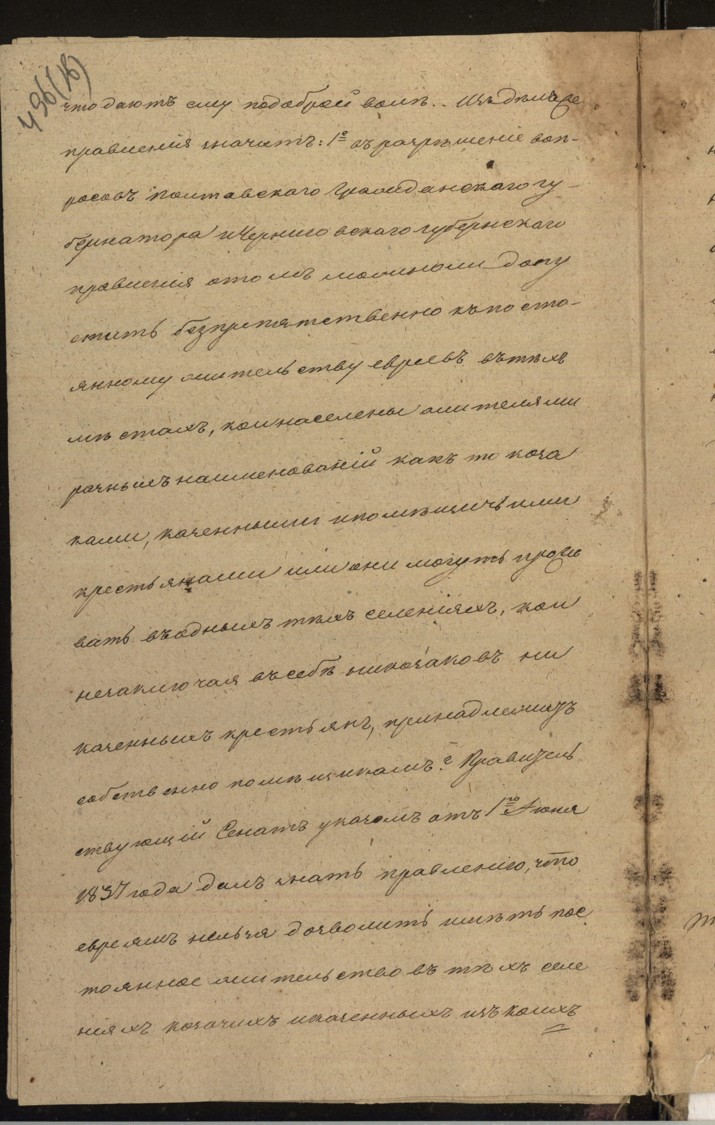 496(16)
что даютъ ему подоброй волѣ. Изъ дѣлъ же
правленія значитъ: 1е въ разрѣшеніе воп-
росовъ Полтавскаго Гражданскаго гу-
бернатора и Черниговскаго губернскаго
правленія о томъ можноли допу
стить безпрепятственно къ посто-
янному жительству евреевъ въ тѣхъ
мѣстахъ, кои населены жителями
разныхъ наименованій какъ то коза
ками, казенными и помѣщичьими
крестьянами или они могутъ прожи
вать въ однихъ тѣхъ селеніяхъ, кои
незаключая въ себѣ ни козаковъ ни
казенныхъ крестьянъ, принадлежатъ
собственно помѣщикамъ? Правитель
ствующій Сенатъ указомъ отъ 1го Июня
1837 года далъ знать правленію, что
евреямъ нельзя дозволить имѣть пос
тоянное жительство въ тѣхъ селе
ніяхъ козачихъ и казенныхъ изъ коихъ